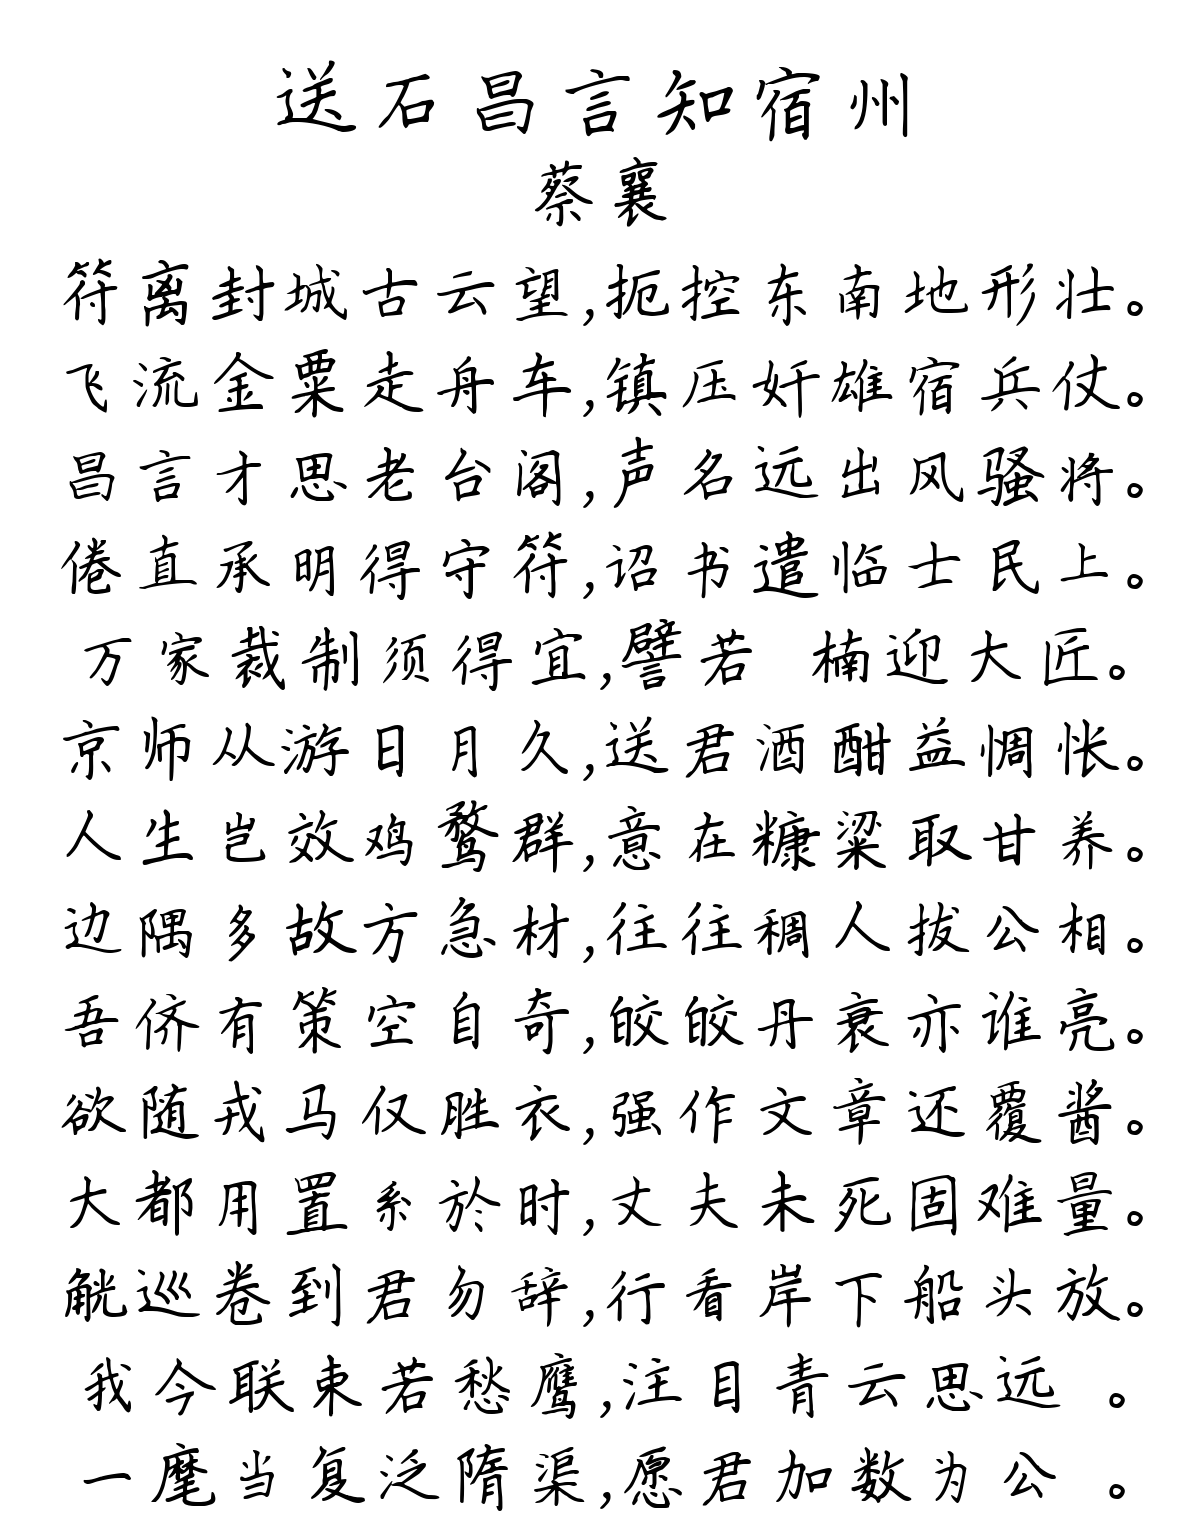 送石昌言知宿州
蔡襄
符离封城古云望,扼控东南地形壮。
飞流金粟走舟车,镇压奸雄宿兵仗。
昌言才思老台阁,声名远出风骚将。
倦直承明得守符,诏书遣临士民上。
万家裁制须得宜,譬若 楠迎大匠。
京师从游日月久,送君酒酣益惆怅。
人生岂效鸡鹜群,意在糠粱取甘养。
边隅多故方急材,往往稠人拔公相。
吾侪有策空自奇,皎皎丹衰亦谁亮。
欲随戎马仅胜衣,强作文章还覆酱。
大都用置系於时,丈夫未死固难量。
觥巡卷到君勿辞,行看岸下船头放。
我今联束若愁鹰,注目青云思远 。
一麾当复泛隋渠,愿君加数为公 。